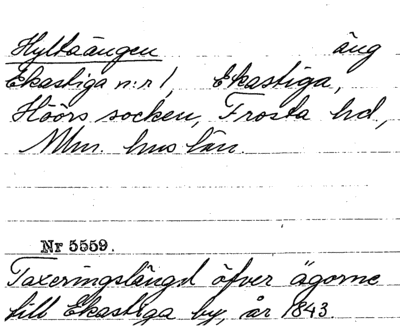 Hyltaängen äng
Ekastiga n:r 1, Ekastiga,
Höörs socken, Frosta hd,
Mlm. hus län.
Nr 5559.
Taxeringslängd öfver ägorne
till Ekastiga by, år 1843.